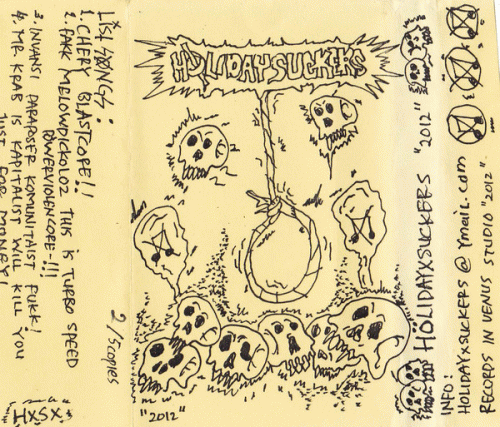 LISt SONGS :
1. CHERY BLASTCORE!!
2. PAKK MELOWDICKOLOZ THIS is TURBO SPEED
POWERVIOLENCORE-!!!
3. NVANSI PARAPOSER KOMUNITAIST PUKK!
4. MR KRAB IS KAPITALIST WILL KILL YOU
JUST FOR MONEY!
HXSX
2/5copies
HOLIDAYSUCKERS
"2012"
"2012" HOLIDAYXSUCKERS "2012"
INFO:
HOLIDAYXSUCKERS @ Ymail.com
RECORDS IN VENUS STUDIO "2012".